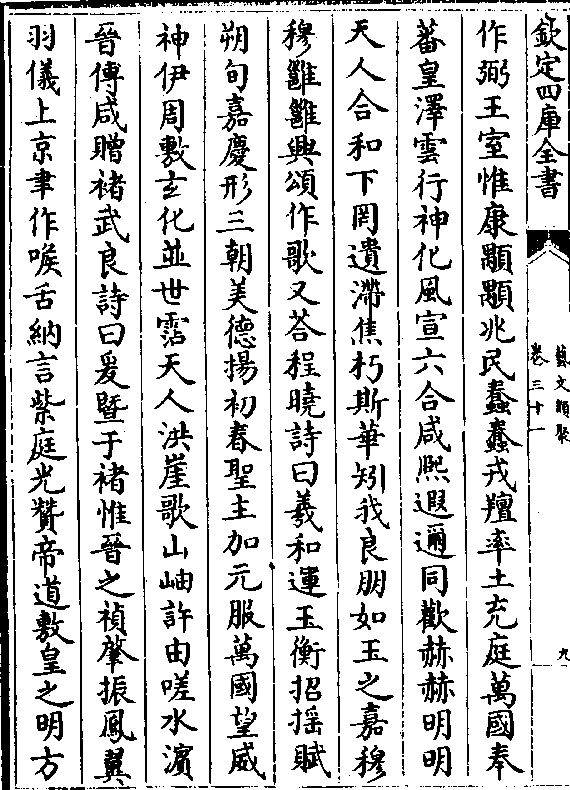 欽定四庫全書
藝文類聚
卷三十一
九
作弼王室惟康顒顒兆民蠢蠢戎羶率土充庭萬國奉
蕃皇澤雲行神化風宣六合咸熈遐邇同歡赫赫明明
天人合和下罔遺滯焦朽斯華矧我良朋如玉之嘉穆
穆雝雝興頌作歌又荅程曉詩曰羲和運玉衡招摇賦
朔旬嘉慶形三朝美德揚初春聖主加元服萬國望威
神伊周敷玄化並世霑天人洪崖歌山岫許由嗟水濱
晉傅咸贈褚武良詩曰爰暨于褚惟晉之禎肇振鳳翼
羽儀上京聿作喉舌納言紫庭光贊帝道敷皇之明方